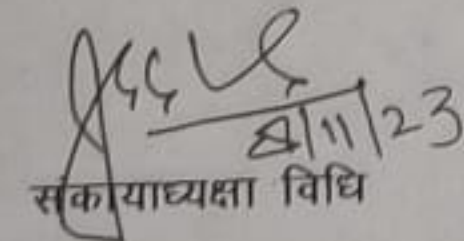 8/11/23
संकायाध्यक्षा विधि